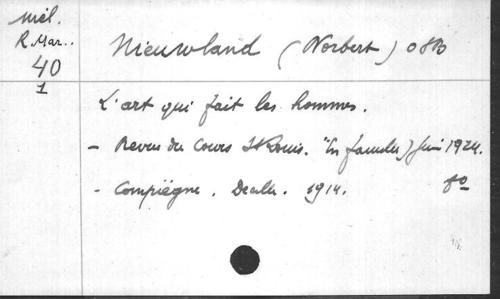 Mél.
R. Mar..
40
1
Nieuwland (Norbert) OSB
L'art qui fait les hommes.
- Revue du Cours St Louis. "En famille) Juin 1924.
- Compiègne. 1914. 8o